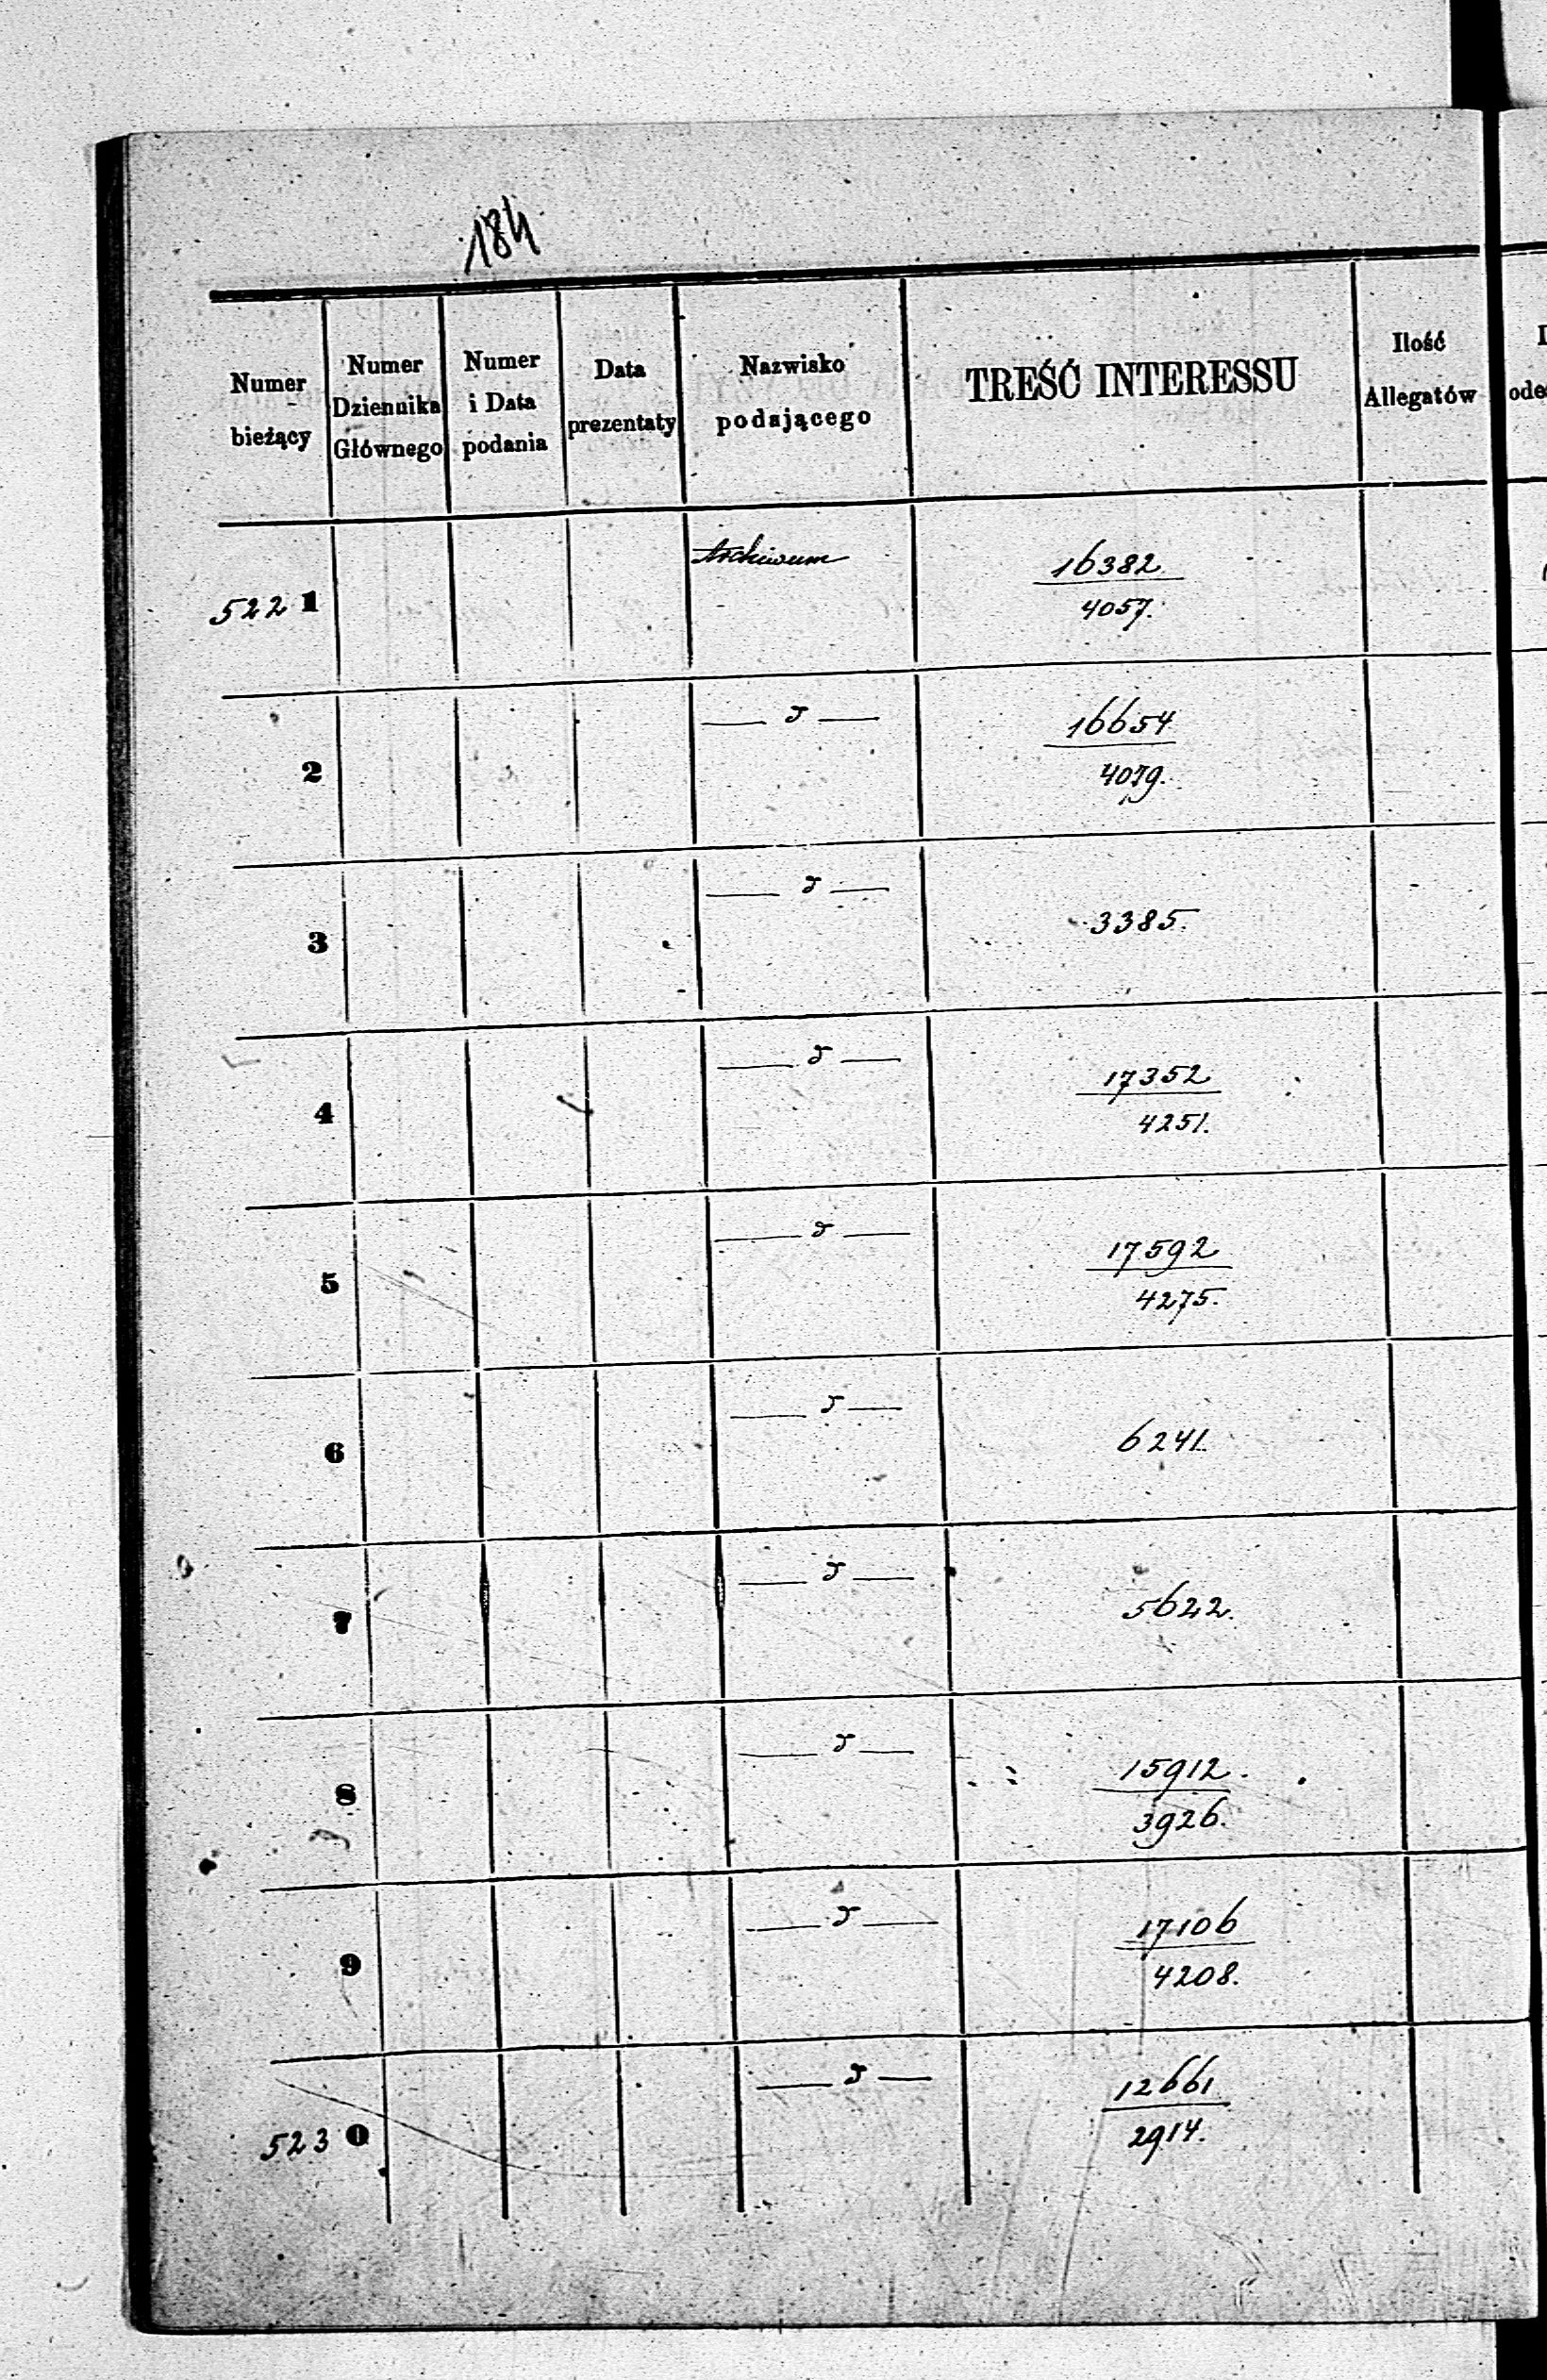 184
Numer bieżący
Numer Dziennika Głównego
Numer i Data podania
Data prezentaty
Nazwisko podającego
TREŚĆ INTERESSU
Ilość Allegatów
5221 Archiwum 16382
4057.
2 — d — 16654
4079.
3 — d — 3385.
4 — d — 17352
4251.
5 — d — 17592
4275.
6 — d — 6241.
7 — d — 5622.
8 — d — 15912.
3926.
9 — d — 17106
4208.
5230 — d — 12661
2914.